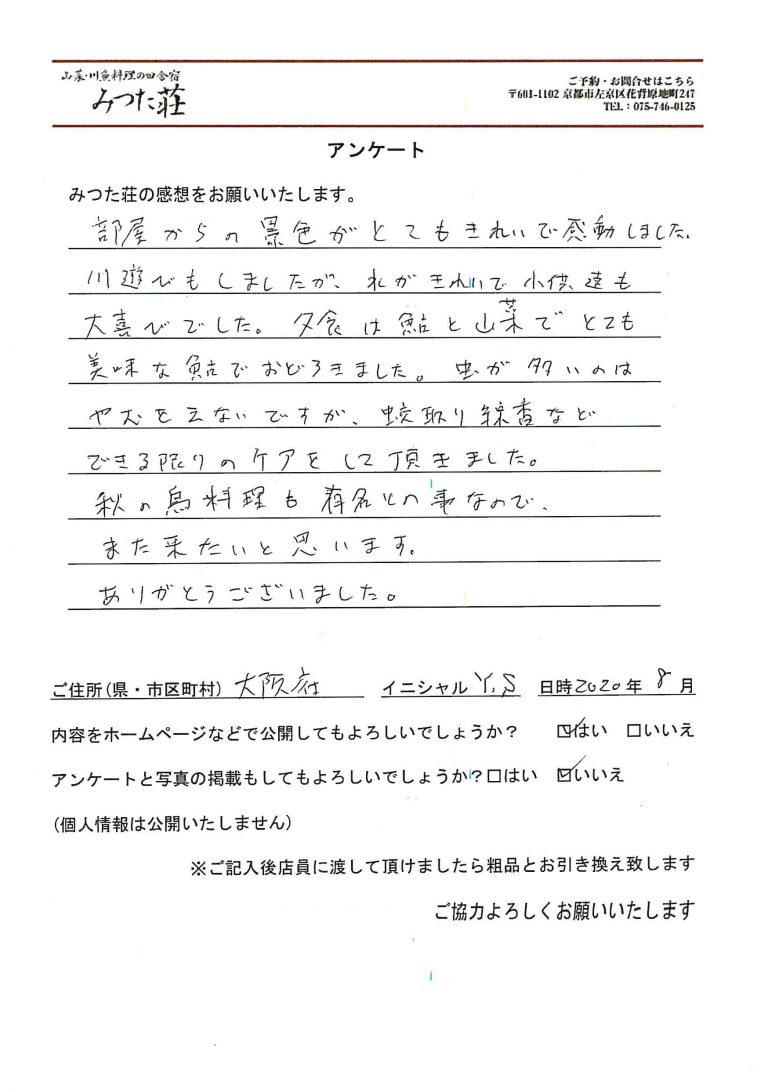 山菜・川魚料理の田舎宿
みつた荘
ご予約・お問合せはこちら
〒601-1102 京都市左京区花背原地町247
TEL：075-746-0125
アンケート
みつた荘の感想をお願いいたします。
部屋からの景色がとてもきれいで感動しました。
川遊びもしましたが、水がきれいで小供達も
大喜びでした。夕食は鮎と山菜でとても
美味な鮎でおどろきました。虫が多いのは
やむをえないですが、蚊取り線香など
できる限りのケアをして頂きました。
秋の鳥料理も有名との事なので、
また来たいと思います。
ありがとうございました。
ご住所(県・市区町村) 大阪府 イニシャル Y.S 日時2020年 8月
内容をホームページなどで公開してもよろしいでしょうか？ ☑はい ☐いいえ
アンケートと写真の掲載もしてもよろしいでしょうか？☐はい ☑いいえ
(個人情報は公開いたしません)
※ご記入後店員に渡して頂けましたら粗品とお引き換え致します
ご協力よろしくお願いいたします